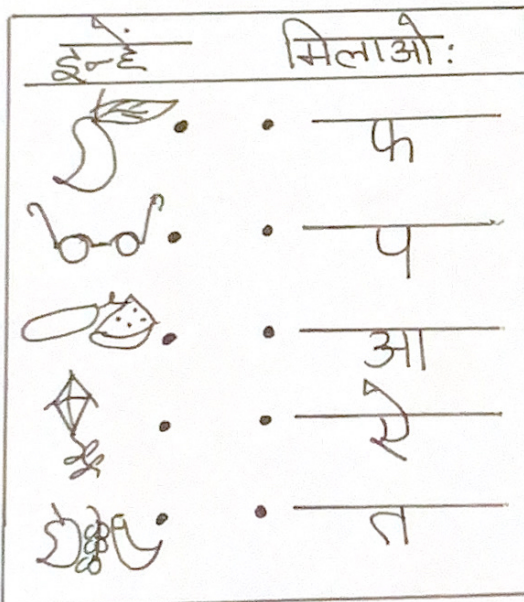 इन्हें मिलाओ:
फ
प
आ
ऐ
त